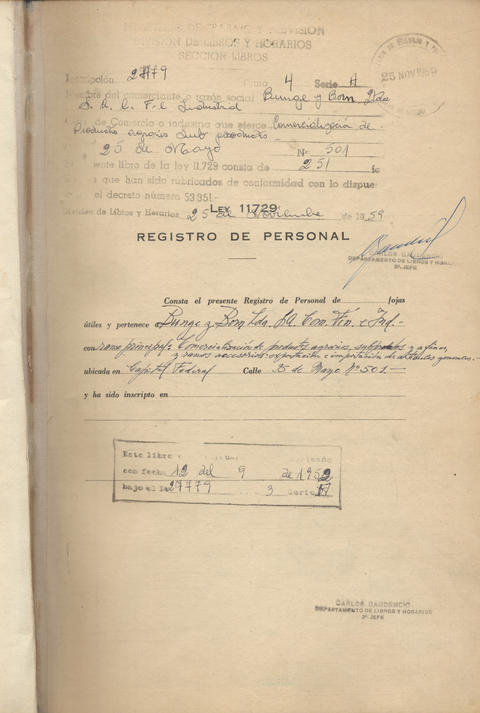 MINISTERIO DE TRABAJO Y PREVISION
DIVISION DE LIBROS Y HORARIOS
SECCION LIBROS
25 NOV 1959
Inscripción 27779 4 Serie A
Nombre del comerciante o razón social Bunge y Born Ltda
S. A. C. F. e Industrial
de Comercio o industria que ejerce Comercialización de
Productos agrarios sub productos
25 de Mayo Nº 501
ente libro de la ley 11.729 consta de 251 fo
s que han sido rubricados de conformidad con lo dispue
el decreto número 53.351.-
División de Libros y Horarios, 25 de Noviembre de 1959
LEY 11729
REGISTRO DE PERSONAL
CARLOS GAUDENCIO
DEPARTAMENTO DE LIBROS Y HORARIOS
2º JEFE
Consta el presente Registro de Personal de fojas
útiles y pertenece a Bunge y Born Ltda. S.A. Com. Fin. e Ind.-
con ramo principal: Comercialización de productos agrarios, y afines,
y ramos accesorios: exportación e importación de artículos generales.-
ubicada en Capital Federal Calle 25 de Mayo Nº 501.-
y ha sido inscripto en
Este libro
con fecha 12 del 9 de 1952
bajo el 27779 3 Serie
CARLOS GAUDENCIO
DEPARTAMENTO DE LIBROS Y HORARIOS
2º JEFE